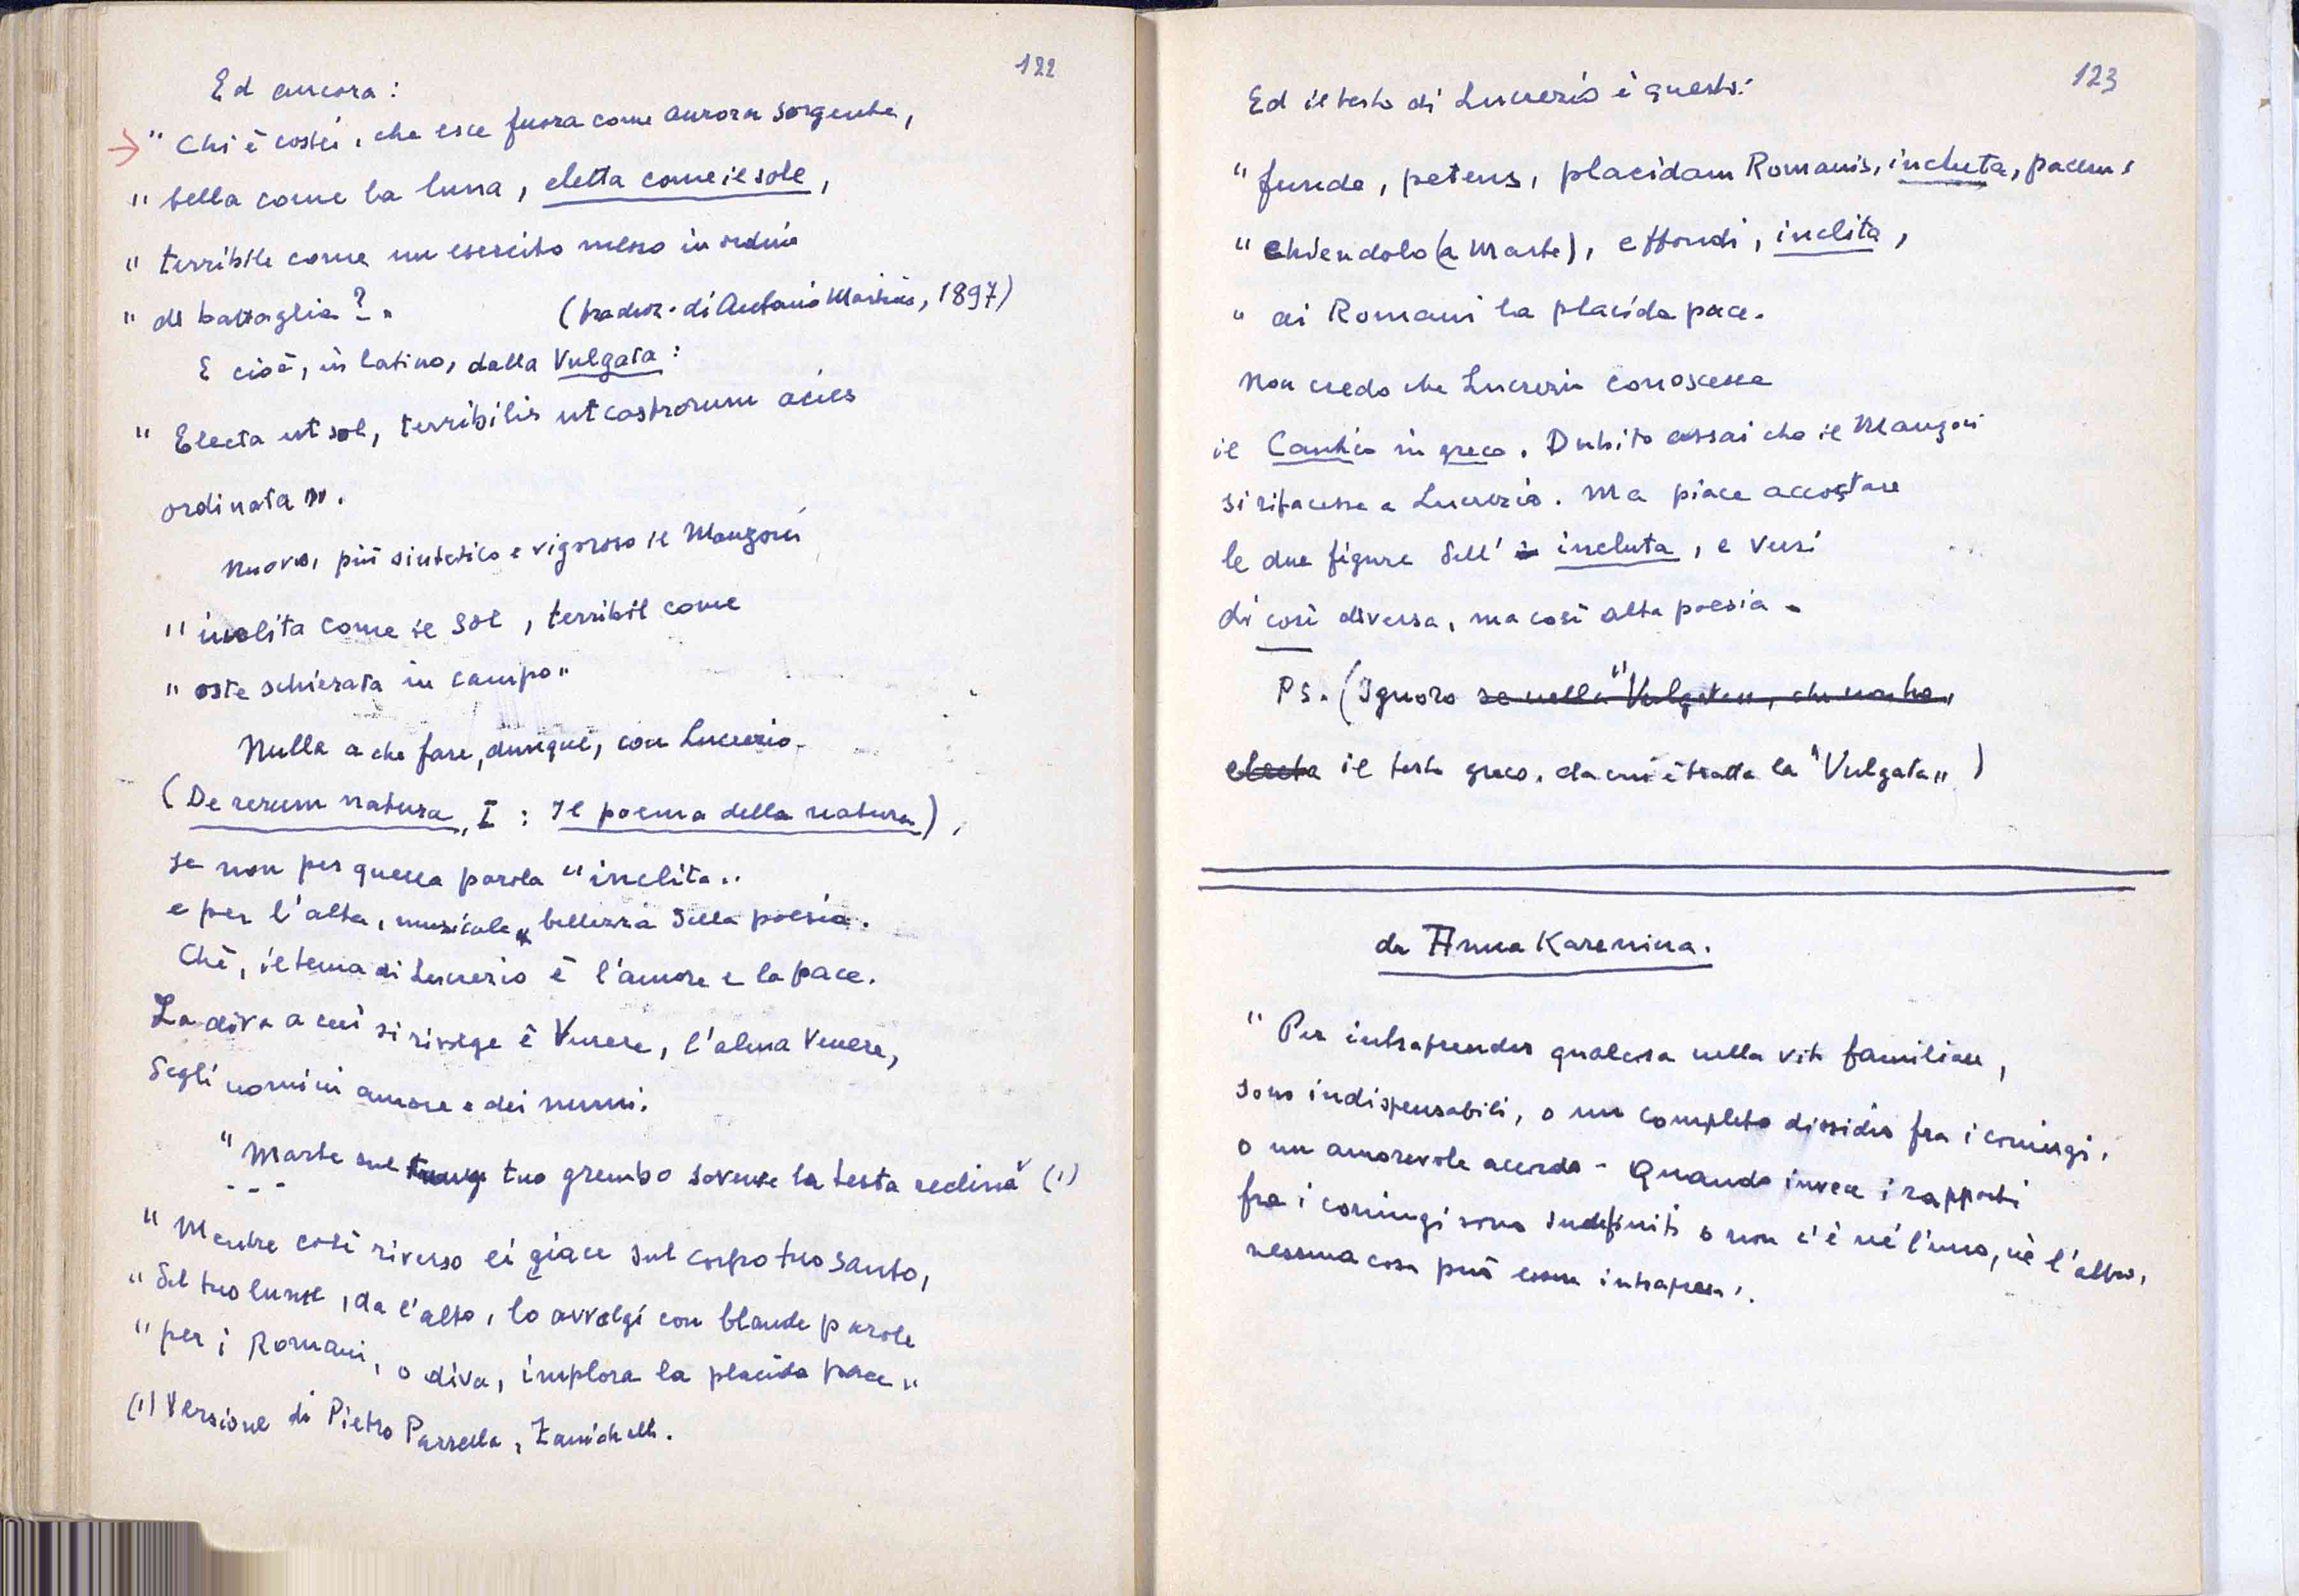 122
Ed ancora:
" Chi è costei, che esce fuora come aurora sorgente,
" bella come la luna, eletta come il sole,
" terribile come un esercito messo in ordine
" di battaglia?"
(traduz. di Antonio Martini, 1897)
E cioè, in latino, dalla Vulgata:
" Electa ut sol, terribilis ut castrorum acies
ordinata".
Nuovo, più sintetico e vigoroso il Manzoni
" inclita come il sol, terribil come
" oste schierata in campo"
Nulla a che fare, dunque, con Lucrezio
(De rerum natura, I: Il poema della natura),
se non per quella parola "inclita"
e per l'alta, musicale bellezza della poesia.
Chè, il tema di Lucrezio è l'amore e la pace.
La diva a cui si rivolge è Venere, l'alma Venere,
degli uomini amore e dei numi.
" Marte sul tuo grembo sovente la testa reclina" (1)
- - -
" Mentre così riverso ei giace sul corpo tuo santo,
" del tuo lume, da l'alto, lo avvolgi con blande parole
" per i Romani, o diva, implora la placida pace"
(1) Versione di Pietro Parrella, Zanichelli.
123
Ed il testo di Lucrezio è questo:
" funde, petens, placidam Romanis, incluta, pacem,
" chiendolo (a Marte), effondi, inclita,
" ai Romani la placida pace.
Non credo che Lucrezio conoscesse
il Cantico in greco. Dubito assai che il Manzoni
si rifacesse a Lucrezio. Ma piace accostare
le due figure dell' incluta, e versi
di così diversa, ma così alta poesia.
PS. (Ignoro se nella "Vulgata", che non ha
electa il testo greco, da cui è tratta la "Vulgata")
da Anna Karenina.
" Per intraprender qualcosa nella vita familiare,
sono indispensabili, o un completo dissidio fra i coniugi,
o un amorevole accordo - Quando invece i rapporti
fra i coniugi sono indefiniti o non c'è né l'uno, nè l'altro,
nessuna cosa può essere intrapresa".